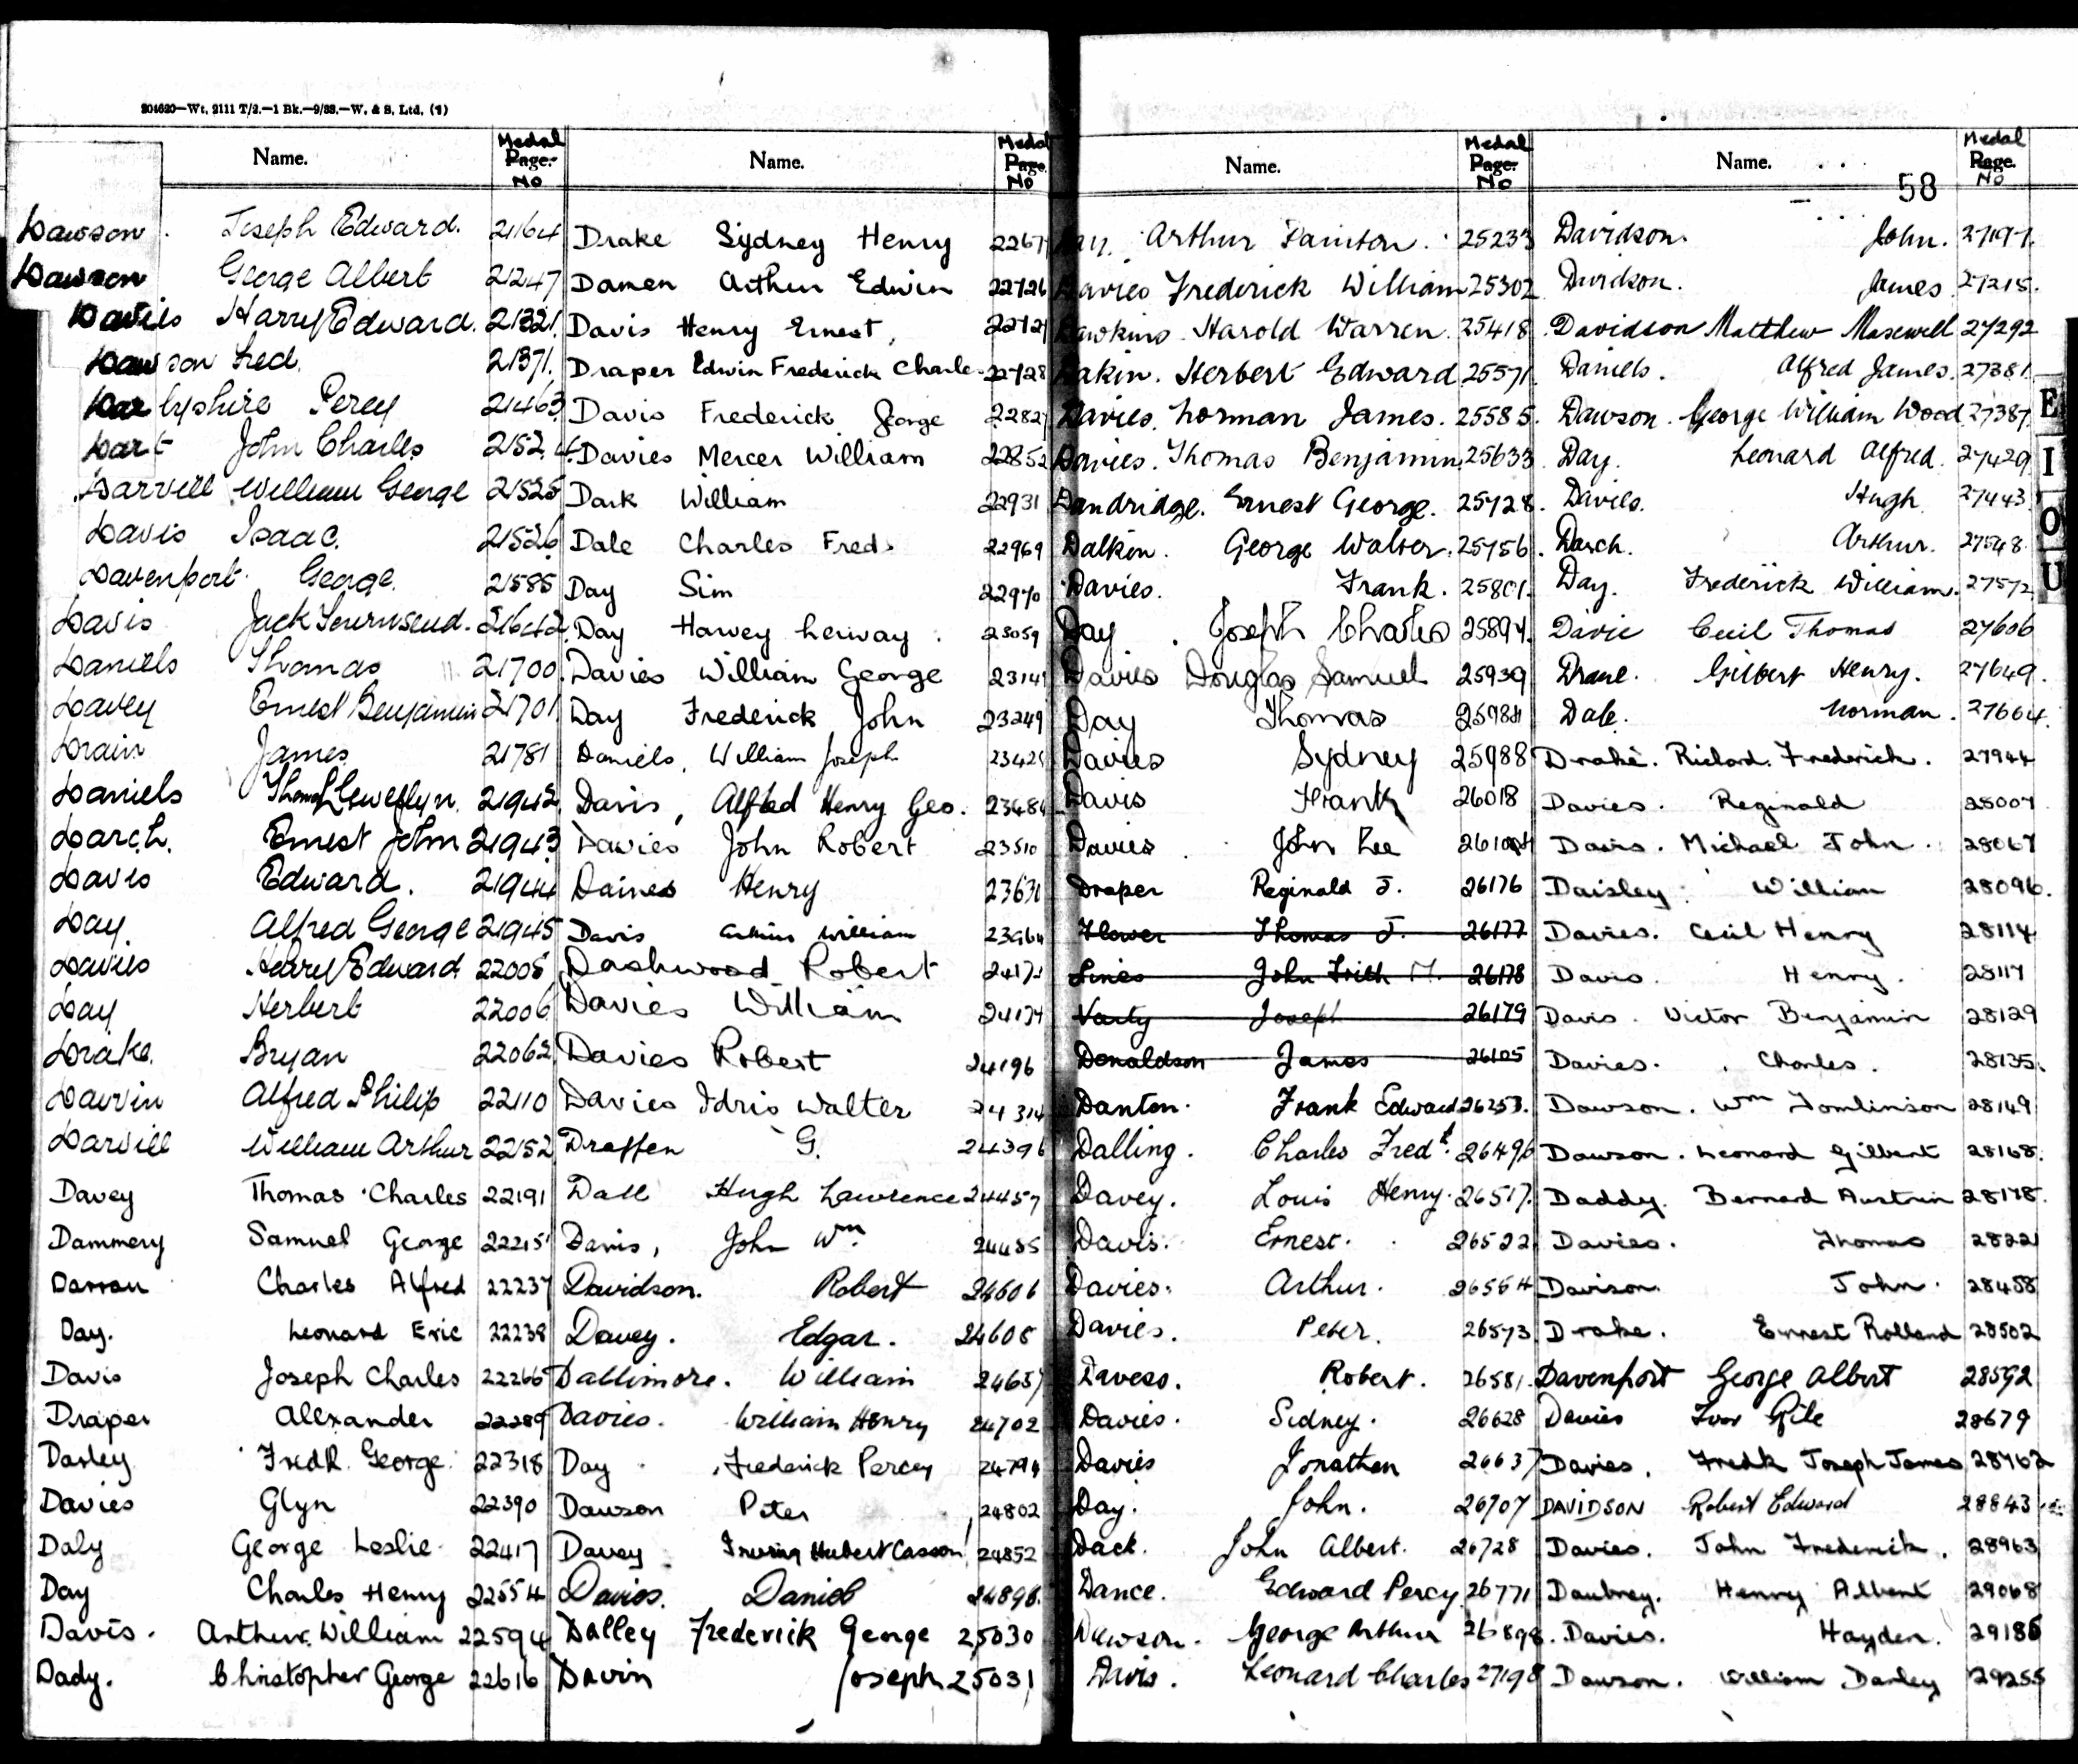 204620—Wt. 2111 T/2.—1 Bk.—9/33.—W. & S. Ltd. (7)
Name. Medal Page. No
Dawson Joseph Edward. 21164
Dawson George Albert 21247
Davies Harry Edward. 21321
Dawson Fred. 21371.
Darbyshire Percy 21463
Dart John Charles 21524
Darvill William George 21525
Davis Isaac. 21526
Davenport George. 21585
Davis Jack Townsend. 21642
Daniels Thomas 21700
Davey Ernest Benjamin 21701
Drain James 21781
Daniels Thomas Llewellyn. 21942
Darch. Ernest John 21943
Davis Edward. 21944
Day Alfred George 21945
Davies Harry Edward 22005
Day Herbert 22006
Drake. Bryan 22062
Darvin Alfred Philip 22110
Darvill William Arthur 22152
Davey Thomas Charles 22191
Dammery Samuel George 22215
Darran Charles Alfred 22237
Day. Leonard Eric 22238
Davis Joseph Charles 22266
Draper Alexander 22289
Darley Fredk. George 22318
Davies Glyn 22390
Daly George Leslie 22417
Day Charles Henry 22554
Davis. Arthur William 22594
Dady. Christopher George 22616
Name. Medal Page. No
Drake Sydney Henry
Damen Arthur Edwin 22726
Davis Henry Ernest, 22727
Draper Edwin Frederick Charles 22728
Davis Frederick George 22827
Davies Mercer William 22852
Dark William 22931
Dale Charles Fred. 22969
Day Sim 22970
Day Harvey 23059
Davies William George
Day Frederick John 23249
Daniels, William Joseph
Davis, Alfred Henry Geo.
Davies John Robert 23510
Daines Henry 23631
Davis William
Dashwood Robert
Davies William 24174
Davies Robert 24196
Davies Idris Walter 24314
Draffen G. 24396
Dall Hugh Lawrence 24457
Davis, John Wm. 24485
Davidson. Robert 24606
Davey. Edgar. 24608
Dallimore. William 24657
Davies. William Henry 24702
Day Frederick Percy 24794
Dawson Peter 24802
Davey Hubert Casson 24852
Davies. Daniel 24898
Dalley Frederick George 25030
Davin Joseph 25031
Name. Medal Page. No
Day. Arthur 25233
Davies Frederick William 25302
Dawkins Harold Warren 25418
Dakin. Herbert Edward 25571
Davies. Norman James. 25585
Davies. Thomas Benjamin 25633
Dandridge. Ernest George. 25728
Dalkin. George Walter. 25756
Davies. Frank. 25801
Day Joseph Charles 25894
Davies Douglas Samuel 25939
Day Thomas 25984
Davies Sydney 25988
Davis Frank 26018
Davies John Lee
Draper Reginald J. 26176
Flower Thomas J. 26177
Lines John Frith 26178
Varty Joseph 26179
Donaldson James 26105
Danton. Frank Edward 26253.
Dalling. Charles Fredk. 26496
Davey. Louis Henry. 26517.
Davis. Ernest. 26522
Davies. Arthur. 26554
Davies. Peter. 26573
Davess. Robert. 26581
Davies. Sidney. 26628
Davies Jonathan 26637
Day. John. 26707
Dack. John Albert. 26728
Dance. Edward Percy 26771
Dawson. George Arthur 26898
Davis. Leonard Charles 27198
Name. Medal Page. No
58
Davidson. John.
Davidson. James 27215.
Davidson Matthew Maxwell 27292
Daniels. Alfred James. 27381
Dawson. George William Wood 27387
Day. Leonard Alfred. 27429
Davies. Hugh 27443
Darch. Arthur. 27548
Day. Frederick William. 27572
Davie Cecil Thomas 27606
Drane. Gilbert Henry. 27649.
Dale. Norman. 27664.
Drake. Richard. Frederick. 27944
Davies. Reginald 28007
Davis. Michael John. 28067
Daisley William 28096.
Davies. Cecil Henry 28114
Davis. Henry. 28117
Davis. Victor Benjamin 28129
Davies. Charles. 28135.
Dawson. Wm Tomlinson 28149
Dawson. Leonard Gilbert 28168.
Daddy. Bernard Austin 28178.
Davies. Thomas 28221
Davison. John. 28458
Drake. Ernest Rolland 28502
Davenport George Albert 28592
Davies Ivor 28679
Davies. Fredk Joseph James 28762
DAVIDSON Robert Edward 28843
Davies. John Frederick. 28963
Daubney. Henry Albert 29068
Davies. Hayden. 29186
Dawson. William Darley 29255
E
I
O
U